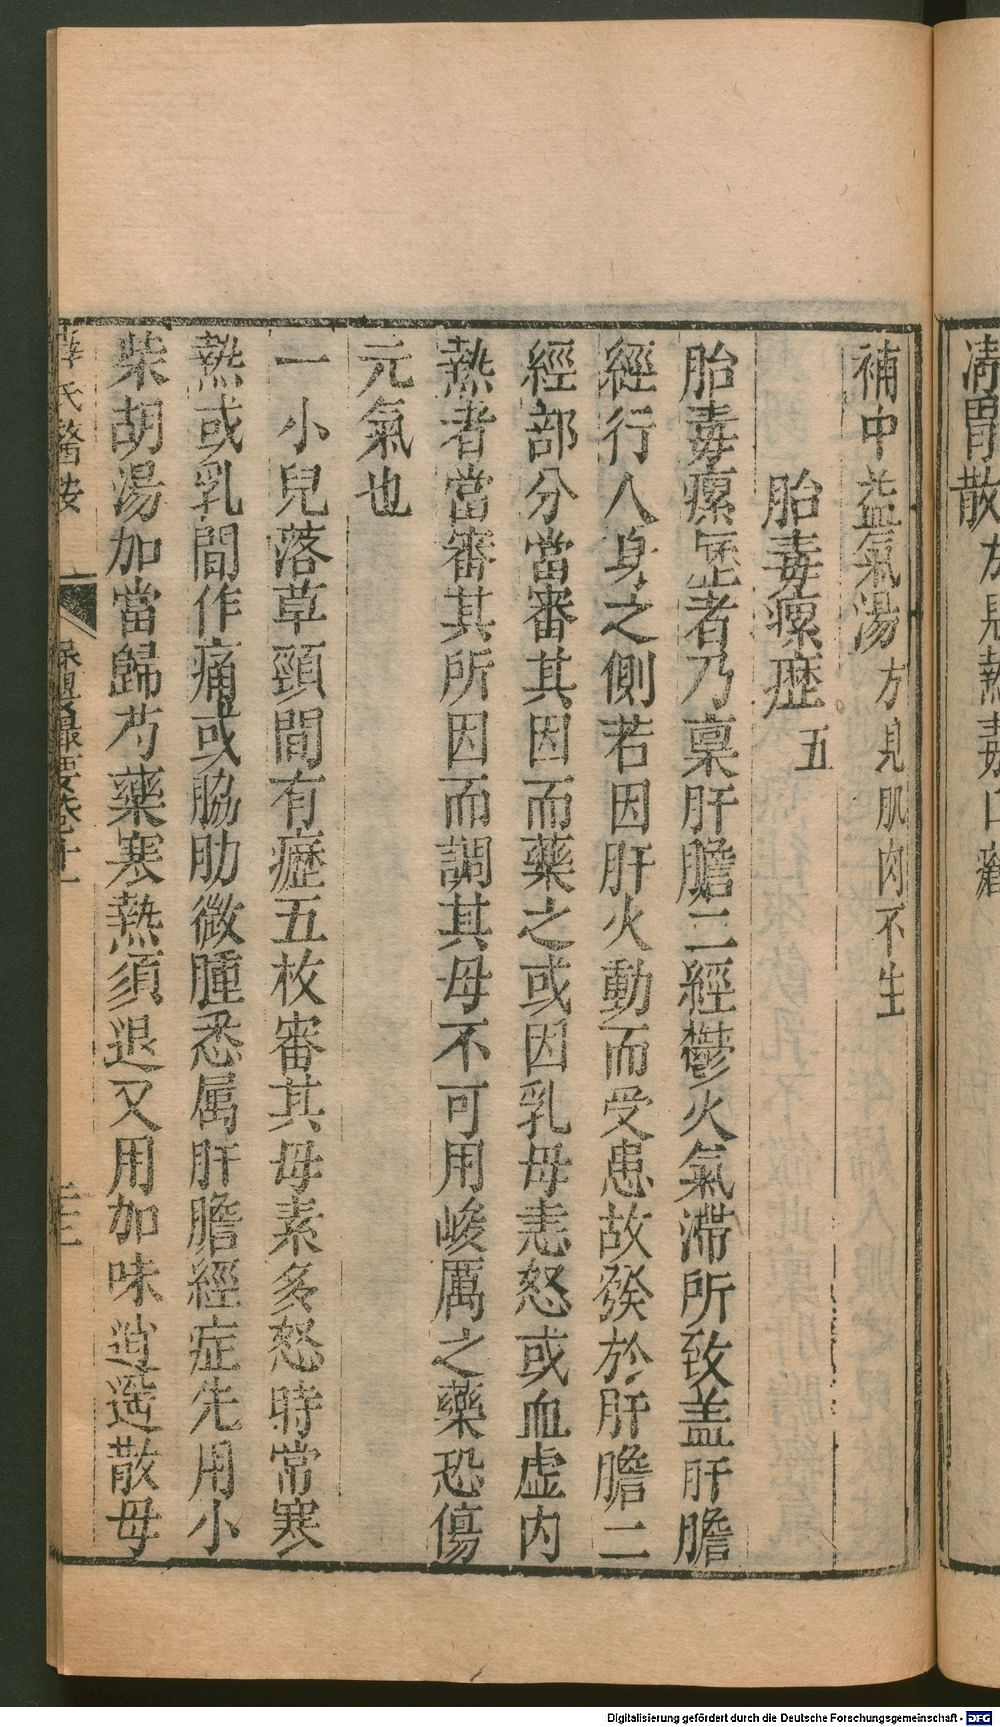 清胃散方見熱毒口瘡
補中益氣湯方見肌肉不生
胎毒瘰癧五
胎毒瘰癧者乃稟肝膽二經鬱火氣滯所致盖肝膽
經行人身之側若因肝火動而受患故發於肝膽二
經部分當審其因而藥之或因乳母恚怒或血虚内
熱者當審其所因而調其母不可用峻厲之藥恐傷
元氣也
一小兒落草頸間有癧五枚審其母素多怒時常寒
熱或乳間作痛或脇肋微腫悉属肝膽經症先用小
柴胡湯加當歸芍藥寒熱須退又用加味逍遥散母
薛氏醫按 保嬰撮要卷十一
Digitalisierung gefördert durch die Deutsche Forschungsgemeinschaft - DFG